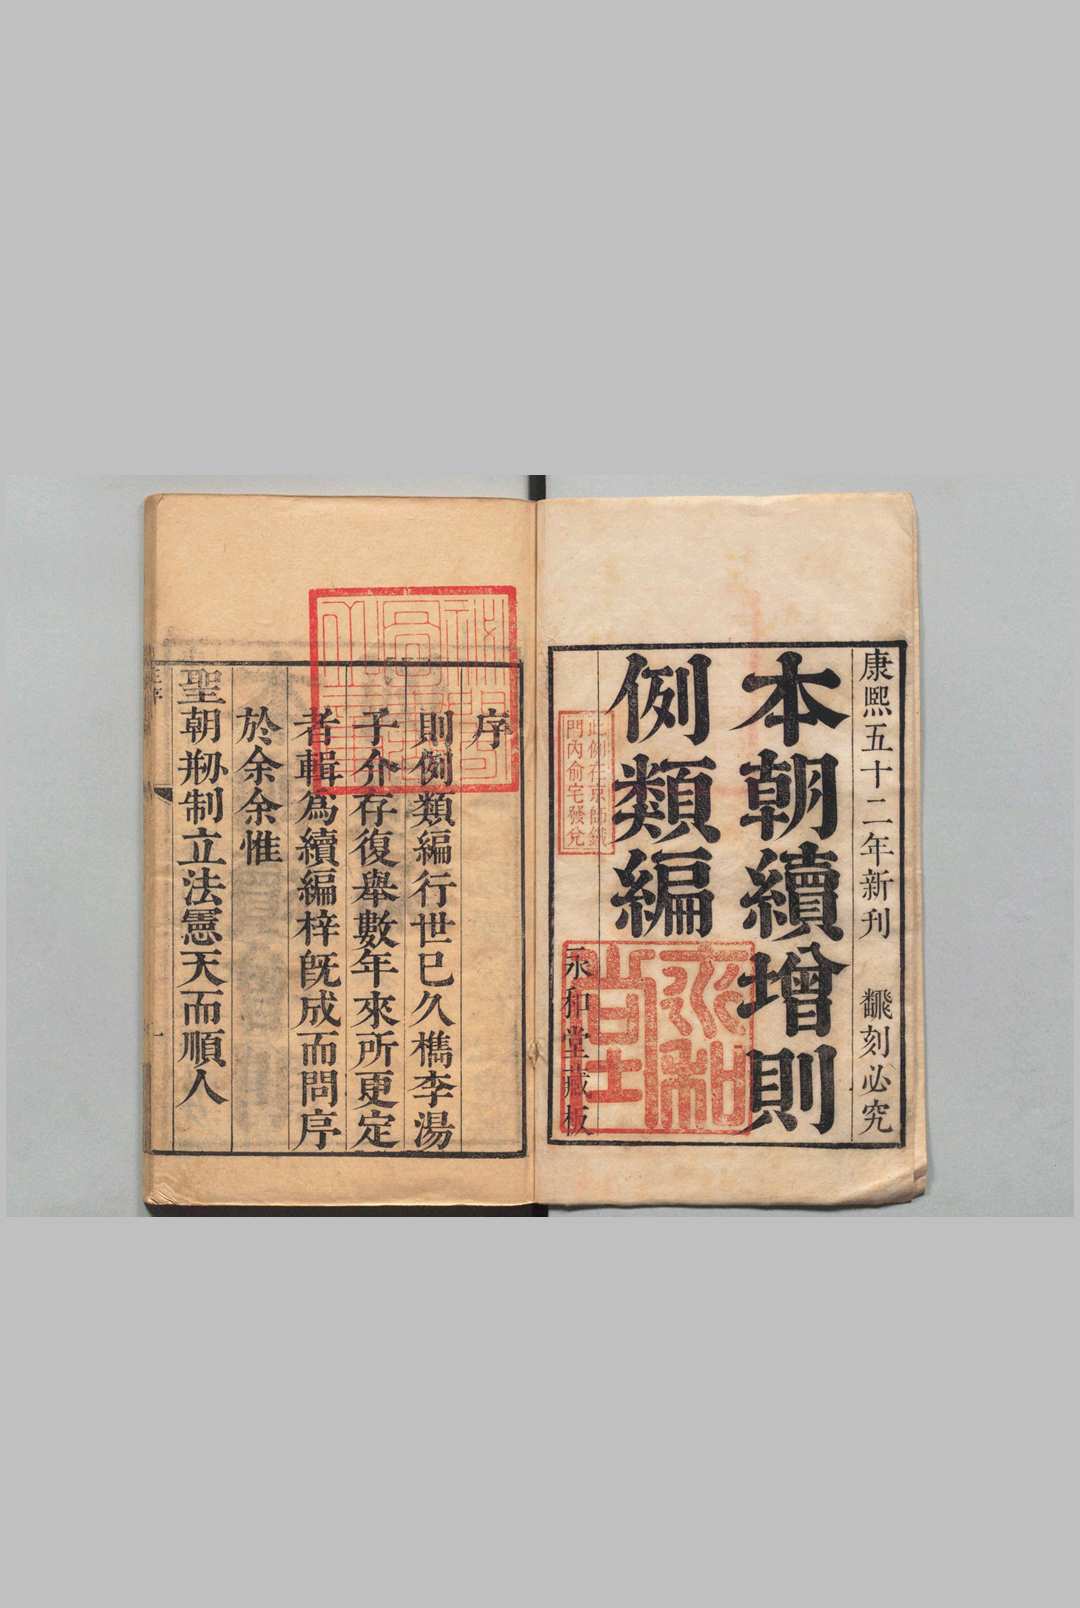 康熙五十二年新刊 飜刻必究
本朝續增則
例類編
此例在京師鐵
門內俞宅發兌
永和堂藏板
永和
堂
序
則例類編行世已久檇李湯
子介存復舉數年來所更定
者輯為續編梓旣成而問序
於余余惟
聖朝剏制立法憲天而順人